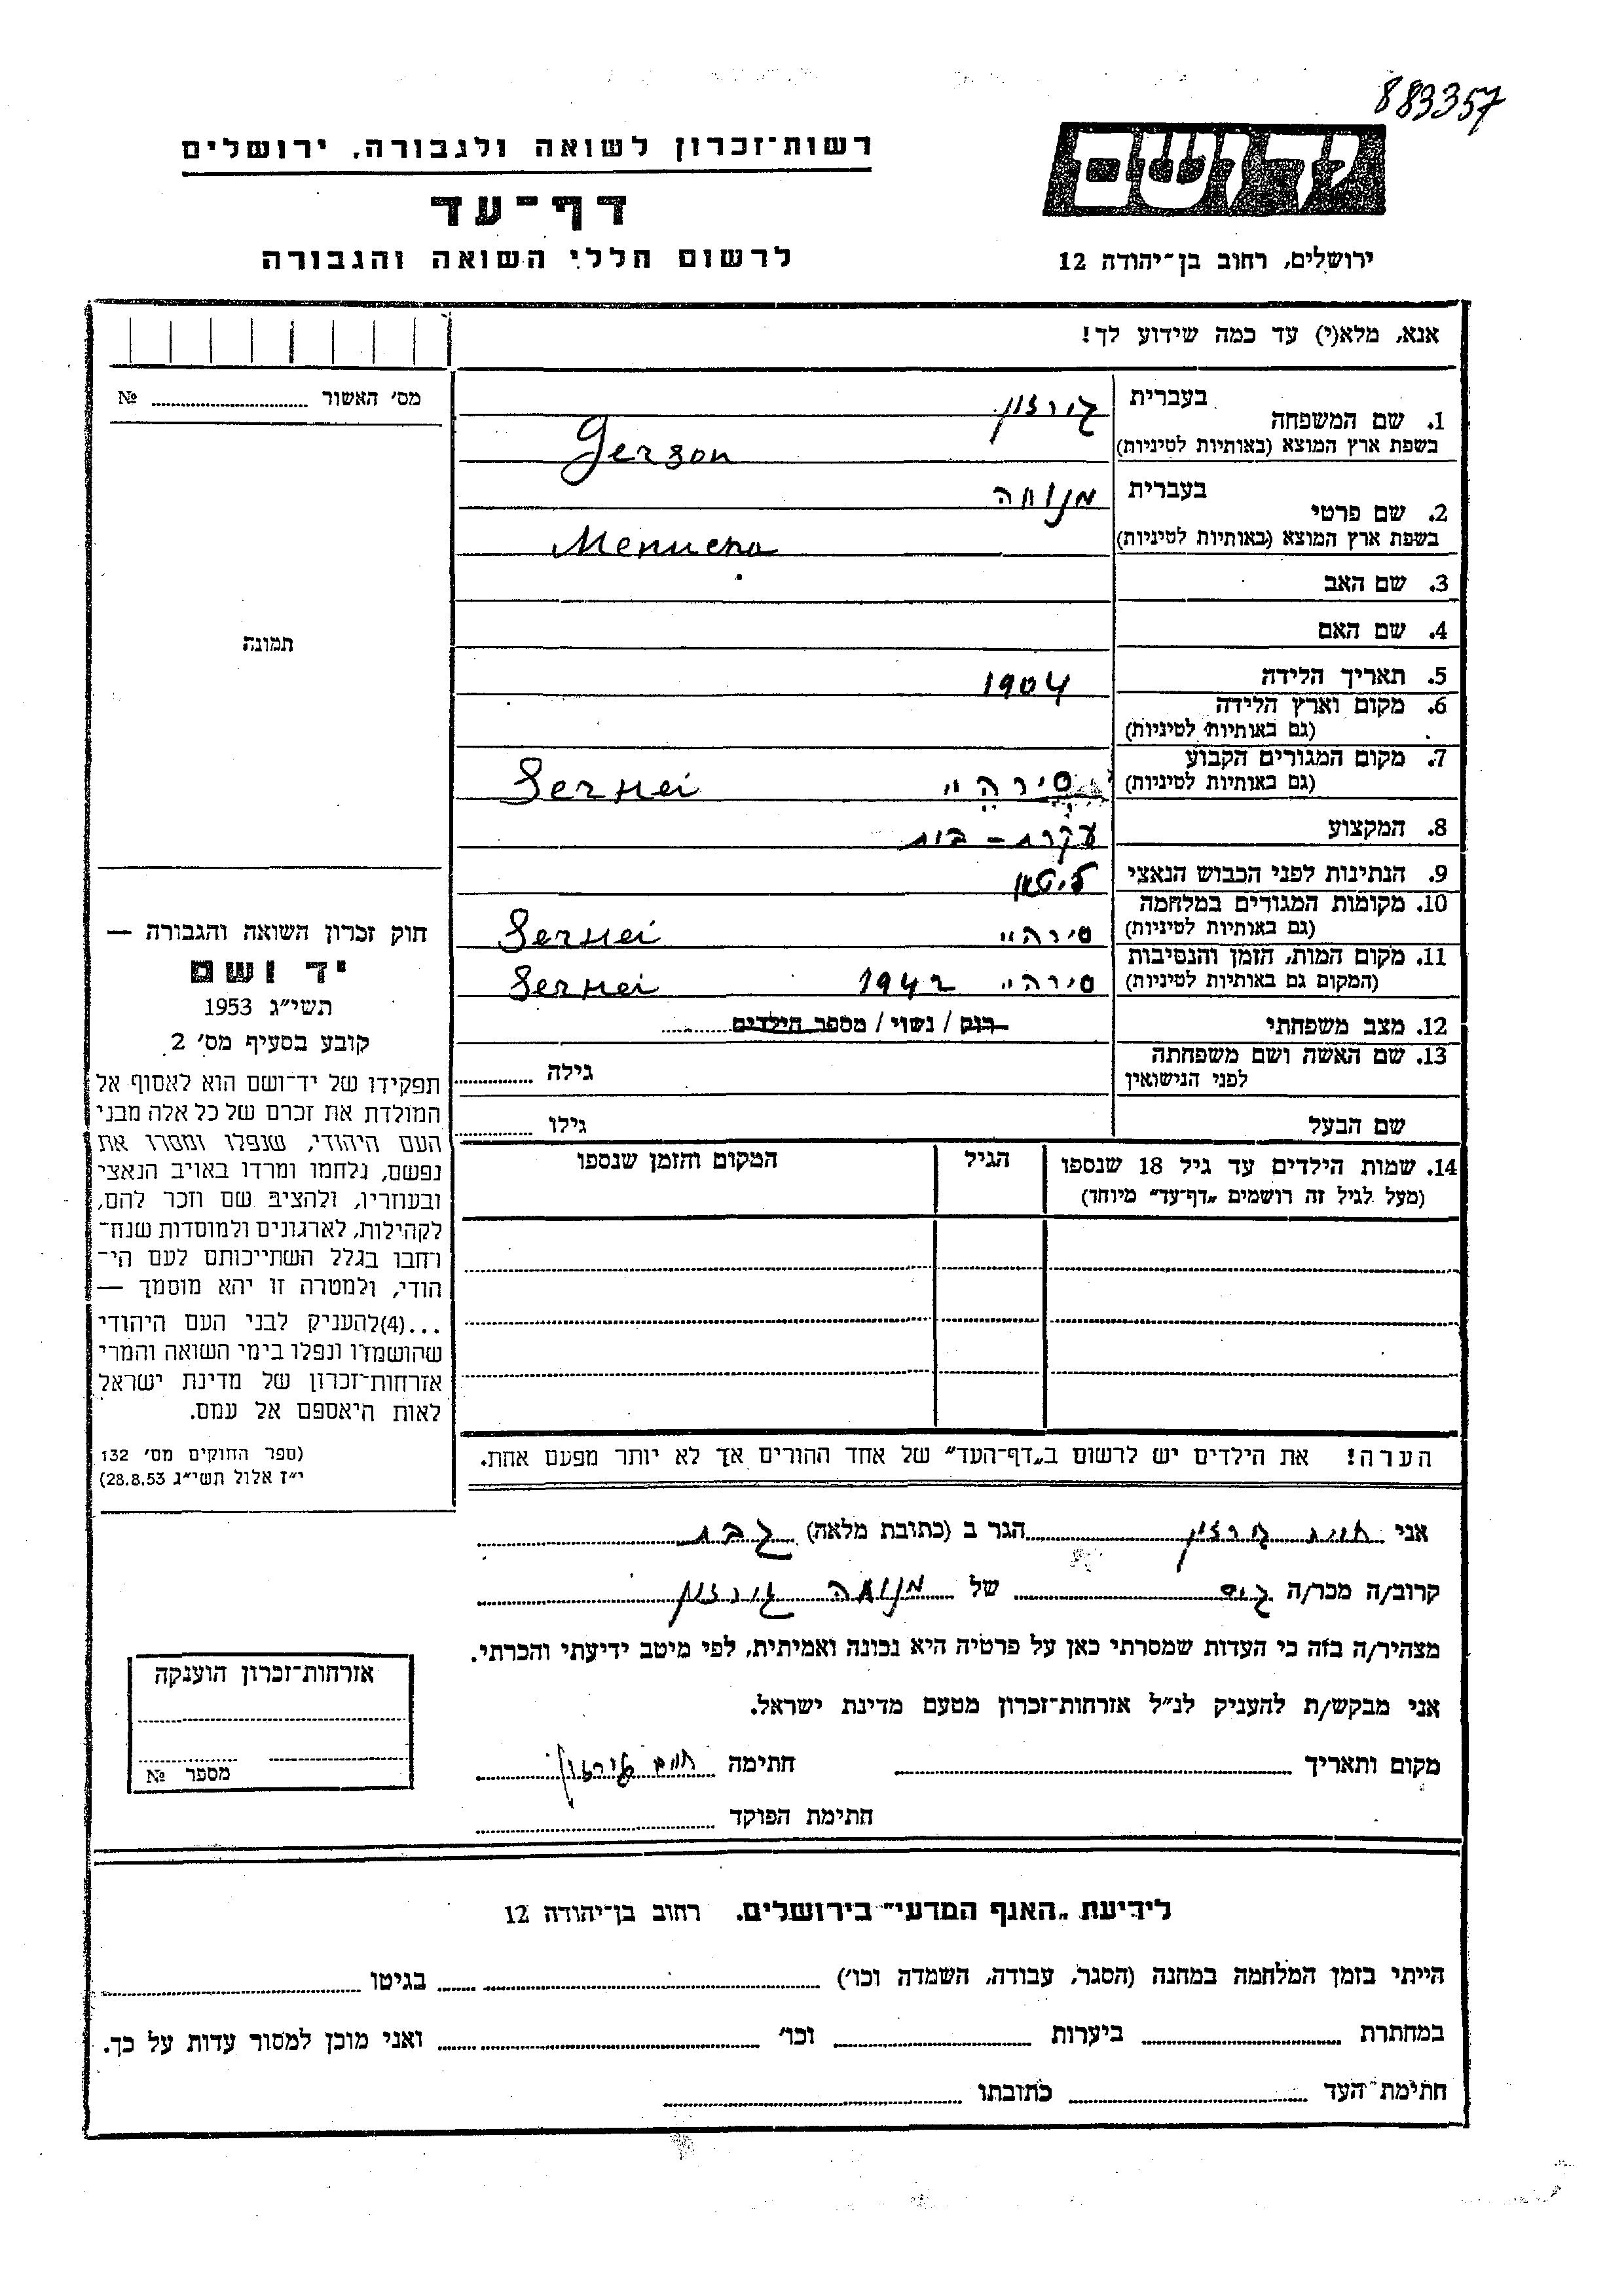 883357
רשות־זכרון לשואה ולגבורה, ירושלים
יד ושם
דף־עד
לרשום חללי השואה והגבורה
ירושלים, רחוב בן־יהודה 12
אנא, מלא(י) עד כמה שידוע לך!
מס׳ האשור № 
1. שם המשפחה בעברית גירזון
בשפת ארץ המוצא (באותיות לטיניות) Gerzon
2. שם פרטי בעברית מנוחה
בשפת ארץ המוצא (באותיות לטיניות) Menucha
3. שם האב
4. שם האם
תמונה
5. תאריך הלידה 1904
6. מקום וארץ הלידה
(גם באותיות לטיניות)
7. מקום המגורים הקבוע
(גם באותיות לטיניות) סירהיי Serhei
8. המקצוע עקרת - בית
9. הנתינות לפני הכבוש הנאצי ליטא
10. מקומות המגורים במלחמה
(גם באותיות לטיניות) סירהיי Serhei
11. מקום המות, הזמן והנסיבות
(המקום גם באותיות לטיניות) סירהיי 1942 Serhei
12. מצב משפחתי רוק / נשוי / מספר הילדים
13. שם האשה ושם משפחתה
לפני הנישואין גילה
שם הבעל גילו
14. שמות הילדים עד גיל 18 שנספו הגיל המקום והזמן שנספו
(מעל לגיל זה רושמים „דף־עד״ מיוחד)
חוק זכרון השואה והגבורה —
יד ושם
תשי״ג 1953
קובע בסעיף מס׳ 2
תפקידו של יד־ושם הוא לאסוף אל
המולדת את זכרם של כל אלה מבני
העם היהודי, שנפלו ומסרו את
נפשם, נלחמו ומרדו באויב הנאצי
ובעוזריו, ולהציב שם וזכר להם,
לקהילות, לארגונים ולמוסדות שנח־
רחבו בגלל השתייכותם לעם הי־
הודי, ולמטרה זו יהא מוסמך —
...(4)להעניק לבני העם היהודי
שהושמדו ונפלו בימי השואה והמרי
אזרחות־זכרון של מדינת ישראל
לאות היאספם אל עמם.
(ספר החוקים מס׳ 132
י״ז אלול תשי״ג 28.8.53)
הערה! את הילדים יש לרשום ב„דף־העד״ של אחד ההורים אך לא יותר מפעם אחת.
אני חיים גירזון הגר ב (כתובת מלאה) גבת
קרוב/ה מכר/ה גיס של מנוחה גירזון
מצהיר/ה בזה כי העדות שמסרתי כאן על פרטיה היא נכונה ואמיתית, לפי מיטב ידיעתי והכרתי.
אני מבקש/ת להעניק לנ״ל אזרחות־זכרון מטעם מדינת ישראל.
מקום ותאריך חתימה חיים גירזון
חתימת הפוקד
אזרחות־זכרון הוענקה
מספר №
לידיעת „האגף המדעי״ בירושלים. רחוב בן־יהודה 12
הייתי בזמן המלחמה במחנה (הסגר, עבודה, השמדה וכו׳) בגיטו
במחתרת ביערות וכו׳ ואני מוכן למסור עדות על כך.
חתימת־העד כתובתו